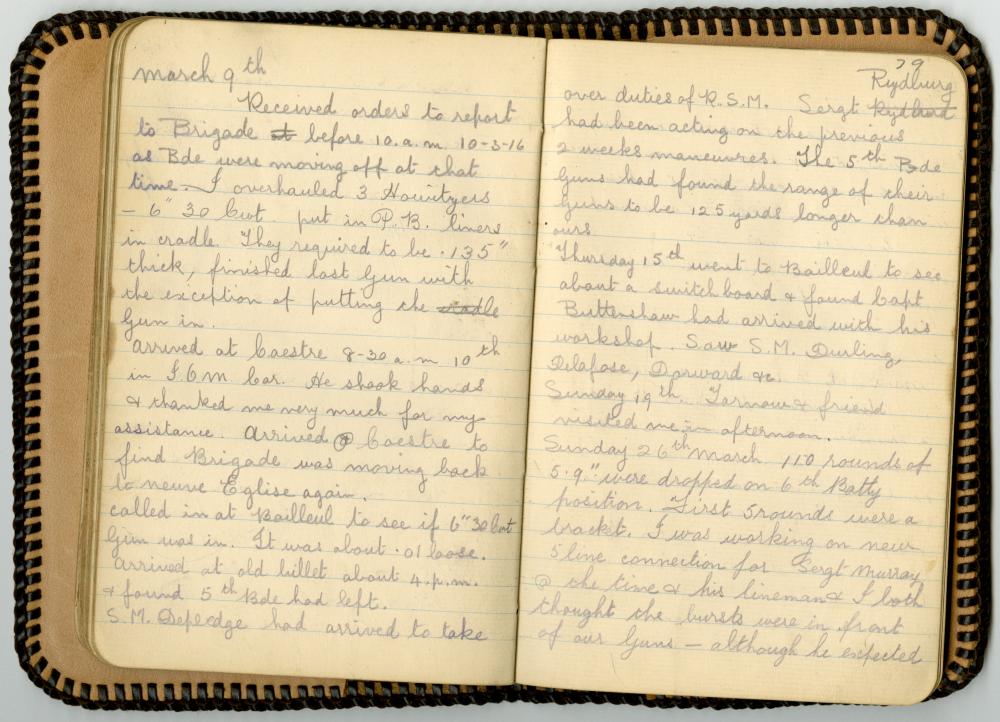 March 9th
Received orders to report
to Brigade at before 10.a.m. 10-3-16
as Bde were moving off at that
time. I overhauled 3 Howitzers
- 6" 30 Cwt. put in P.B. liners
in cradle. They required to be .135"
thick, finished last Gun with
the exception of putting the cradle
Gun in.
Arrived at Caestre 8-30 a.m 10th
in I.O.M. Car. He shook hands
& thanked me very much for my
assistance. Arrived @ Caestre to
find Brigade was moving back
to neuve Eglise again.
called in at Bailleul to see if 6" 30 Cwt
Gun was in. It was about .01 loose.
Arrived at old billet about 4.p.m.
& found 5th Bde had left.
S.M. Depedge had arrived to take
79
Rydburg
over duties of R.S.M. Sergt
had been acting on the previous
2 weeks maneuvres. The 5th Bde
Guns had found the range of their
Guns to be 125 yards longer than
ours
Thursday 15th went to Bailleul to see
about a switchboard & found Capt
Buttenshaw had arrived with his
workshop. Saw S.M. Durling,
Delafose, Dorward &c.
Sunday 19th. Tarnow & friend
visited me in afternoon.
Sunday 26th March 110 rounds of
5.9" were dropped on 6th Batty
position. First 5 rounds were a
bracket. I was working on new
5 line connection for Sergt Murray
@ the time & his lineman & I both
thought the bursts were in front
of our Guns - although he expected